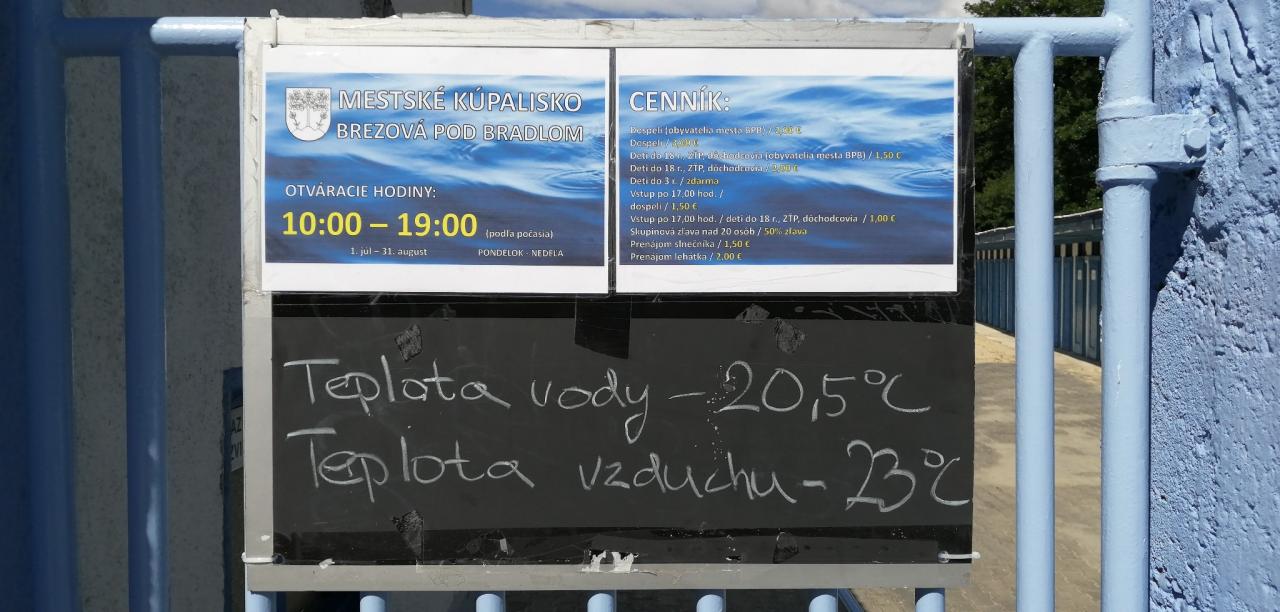 MESTSKÉ KÚPALISKO
BREZOVÁ POD BRADLOM
OTVÁRACIE HODINY:
10:00 – 19:00 (podľa počasia)
1. júl – 31. august PONDELOK - NEDEĽA
CENNÍK:
Dospelí (obyvatelia mesta BPB) / 2,00 €
Dospelí / 3,00 €
Deti do 18 r., ZŤP, dôchodcovia (obyvatelia mesta BPB) / 1,50 €
Deti do 18 r., ZŤP, dôchodcovia / 2,00 €
Deti do 3 r. / zdarma
Vstup po 17,00 hod. /
dospelí / 1,50 €
Vstup po 17,00 hod. / deti do 18 r., ZŤP, dôchodcovia / 1,00 €
Skupinová zľava nad 20 osôb / 50% zľava
Prenájom slnečníka / 1,50 €
Prenájom lehátka / 2,00 €
Teplota vody – 20,5°C
Teplota vzduchu – 23°C